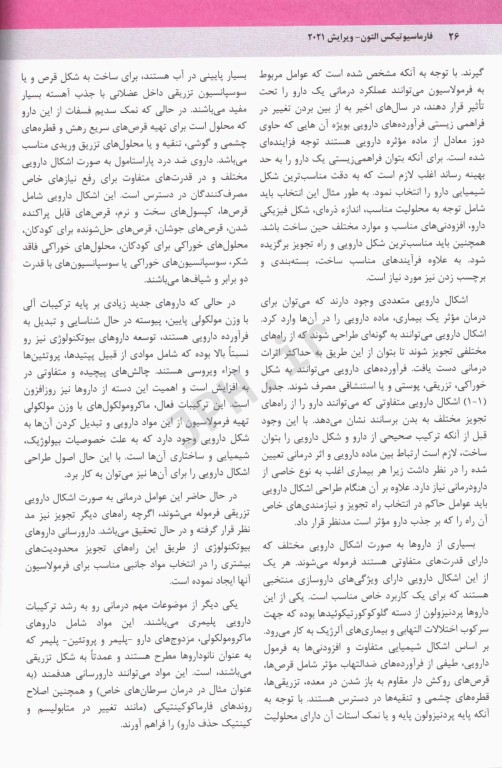 ۲۶ فارماسیوتیکس التون- ویرایش ۲۰۲۱
گیرند. با توجه به آنکه مشخص شده است که عوامل مربوط
به فرمولاسیون می‌توانند عملکرد درمانی یک دارو را تحت
تأثیر قرار دهند، در سال‌های اخیر به از بین بردن تغییر در
فراهمی زیستی فرآورده‌های دارویی بویژه آن هایی که حاوی
دوز معادل از ماده مؤثره دارویی هستند توجه فزاینده‌ای
شده است. برای آنکه بتوان فراهمی‌زیستی یک دارو را به حد
بهینه رساند اغلب لازم است که به دقت مناسب‌ترین شکل
شیمیایی دارو را انتخاب نمود. به طور مثال این انتخاب باید
شامل توجه به محلولیت مناسب، اندازه ذره‌ای، شکل فیزیکی
دارو، افزودنی‌های مناسب و موارد مختلف حین ساخت باشد.
همچنین باید مناسب‌ترین شکل دارویی و راه تجویز برگزیده
شود. به علاوه فرآیندهای مناسب ساخت، بسته‌بندی و
برچسب زدن نیز مورد نیاز است.
اشکال دارویی متعددی وجود دارند که می‌توان برای
درمان مؤثر یک بیماری، ماده دارویی را در آن‌ها وارد کرد.
اشکال دارویی می‌توانند به گونه‌ای طراحی شوند که از راه‌های
مختلفی تجویز شوند تا بتوان از این طریق به حداکثر اثرات
درمانی دست یافت. فرآورده‌های دارویی می‌توانند به شکل
خوراکی، تزریقی، پوستی و یا استنشاقی مصرف شوند. جدول
(۱-۱) اشکال دارویی متفاوتی که می‌توانند دارو را از راه‌های
تجویز مختلف به بدن برسانند نشان می‌دهد. با این وجود
قبل از آنکه ترکیب صحیحی از دارو و شکل دارویی را بتوان
ساخت، لازم است ارتباط بین ماده دارویی و اثر درمانی تعیین
شده را در نظر داشت زیرا هر بیماری اغلب به نوع خاصی از
دارودرمانی نیاز دارد. علاوه بر آن هنگام طراحی اشکال دارویی
باید عوامل حاکم در انتخاب راه تجویز و نیازمندی‌های خاص
آن راه را که بر جذب دارو مؤثر است مدنظر قرار داد.
بسیاری از داروها به صورت اشکال دارویی مختلف که
دارای قدرت‌های متفاوتی هستند فرموله می‌شوند. هر یک
از این اشکال دارویی دارای ویژگی‌های داروسازی منتخبی
هستند که برای یک کاربرد خاص مناسب است. یکی از این
داروها پردنیزولون از دسته گلوکوکورتیکوئیدها بوده که جهت
سرکوب اختلالات التهابی و بیماری‌های آلرژیک به کار می‌رود.
بر اساس اشکال شیمیایی متفاوت و افزودنی‌ها به فرمول
دارویی، طیفی از فرآورده‌های ضدالتهاب مؤثر شامل قرص‌ها،
قرص‌های روکش دار مقاوم به باز شدن در معده، تزریقی‌ها،
قطره‌های چشمی و تنقیه‌ها در دسترس هستند. با توجه به
آنکه پایه پردنیزولون پایه و یا نمک استات آن دارای محلولیت
بسیار پایینی در آب هستند، برای ساخت به شکل قرص و یا
سوسپانسیون تزریقی داخل عضلانی با جذب آهسته بسیار
مفید می‌باشند. در حالی که نمک سدیم فسفات از این دارو
که محلول است برای تهیه قرص‌های سریع رهش و قطره‌های
چشمی و گوشی، تنقیه و یا محلول‌های تزریق وریدی مناسب
می‌باشد. داروی ضد درد پاراستامول به صورت اشکال دارویی
مختلف و در قدرت‌های متفاوت برای رفع نیازهای خاص
مصرف‌کنندگان در دسترس است. این اشکال دارویی شامل
قرص‌ها، کپسول‌های سخت و نرم، قرص‌های قابل پراکنده
شدن، قرص‌های جوشان، قرص‌های حل‌شونده برای کودکان،
محلول‌های خوراکی برای کودکان، محلول‌های خوراکی فاقد
شکر، سوسپانسیون‌های خوراکی یا سوسپانسیون‌های با قدرت
دو برابر و شیاف‌ها می‌باشند.
در حالی که داروهای جدید زیادی بر پایه ترکیبات آلی
با وزن مولکولی پایین، پیوسته در حال شناسایی و تبدیل به
فرآورده دارویی هستند، توسعه داروهای بیوتکنولوژی نیز رو
نسبتاً بالا بوده که شامل موادی از قبیل پپتیدها، پروتئین‌ها
و اجزاء ویروسی هستند. چالش‌های پیچیده و متفاوتی در
به افزایش است و اهمیت این دسته از داروها نیز روزافزون
است. این ترکیبات فعال، ماکرومولکول‌های با وزن مولکولی
تهیه فرمولاسیون از این مواد دارویی و تبدیل کردن آن‌ها به
شکل دارویی وجود دارد که به علت خصوصیات بیولوژیک،
شیمیایی و ساختاری آن‌ها است. با این حال اصول طراحی
اشکال دارویی را برای آن‌ها نیز می‌توان به کار برد.
در حال حاضر این عوامل درمانی به صورت اشکال دارویی
تزریقی فرموله می‌شوند، اگرچه راه‌های دیگر تجویز نیز مد
نظر قرار گرفته و در حال تحقیق می‌باشد. دارورسانی داروهای
بیوتکنولوژی از طریق این راه‌های تجویز محدودیت‌های
بیشتری را در انتخاب مواد جانبی مناسب برای فرمولاسیون
آنها ایجاد نموده است.
یکی دیگر از موضوعات مهم درمانی رو به رشد ترکیبات
دارویی پلیمری می‌باشند. این مواد شامل داروهای
ماکرومولکولی، مزدوج‌های دارو -پلیمر و پروتئین- پلیمر که
به عنوان نانوداروها مطرح هستند و عمدتاً به شکل تزریقی
می‌باشند، است. این مواد می‌توانند دارورسانی هدفمند (به
عنوان مثال در درمان سرطان‌های خاص) و همچنین اصلاح
روندهای فارماکوکینتیکی (مانند تغییر در متابولیسم و
کینتیک حذف دارو) را فراهم آورند.